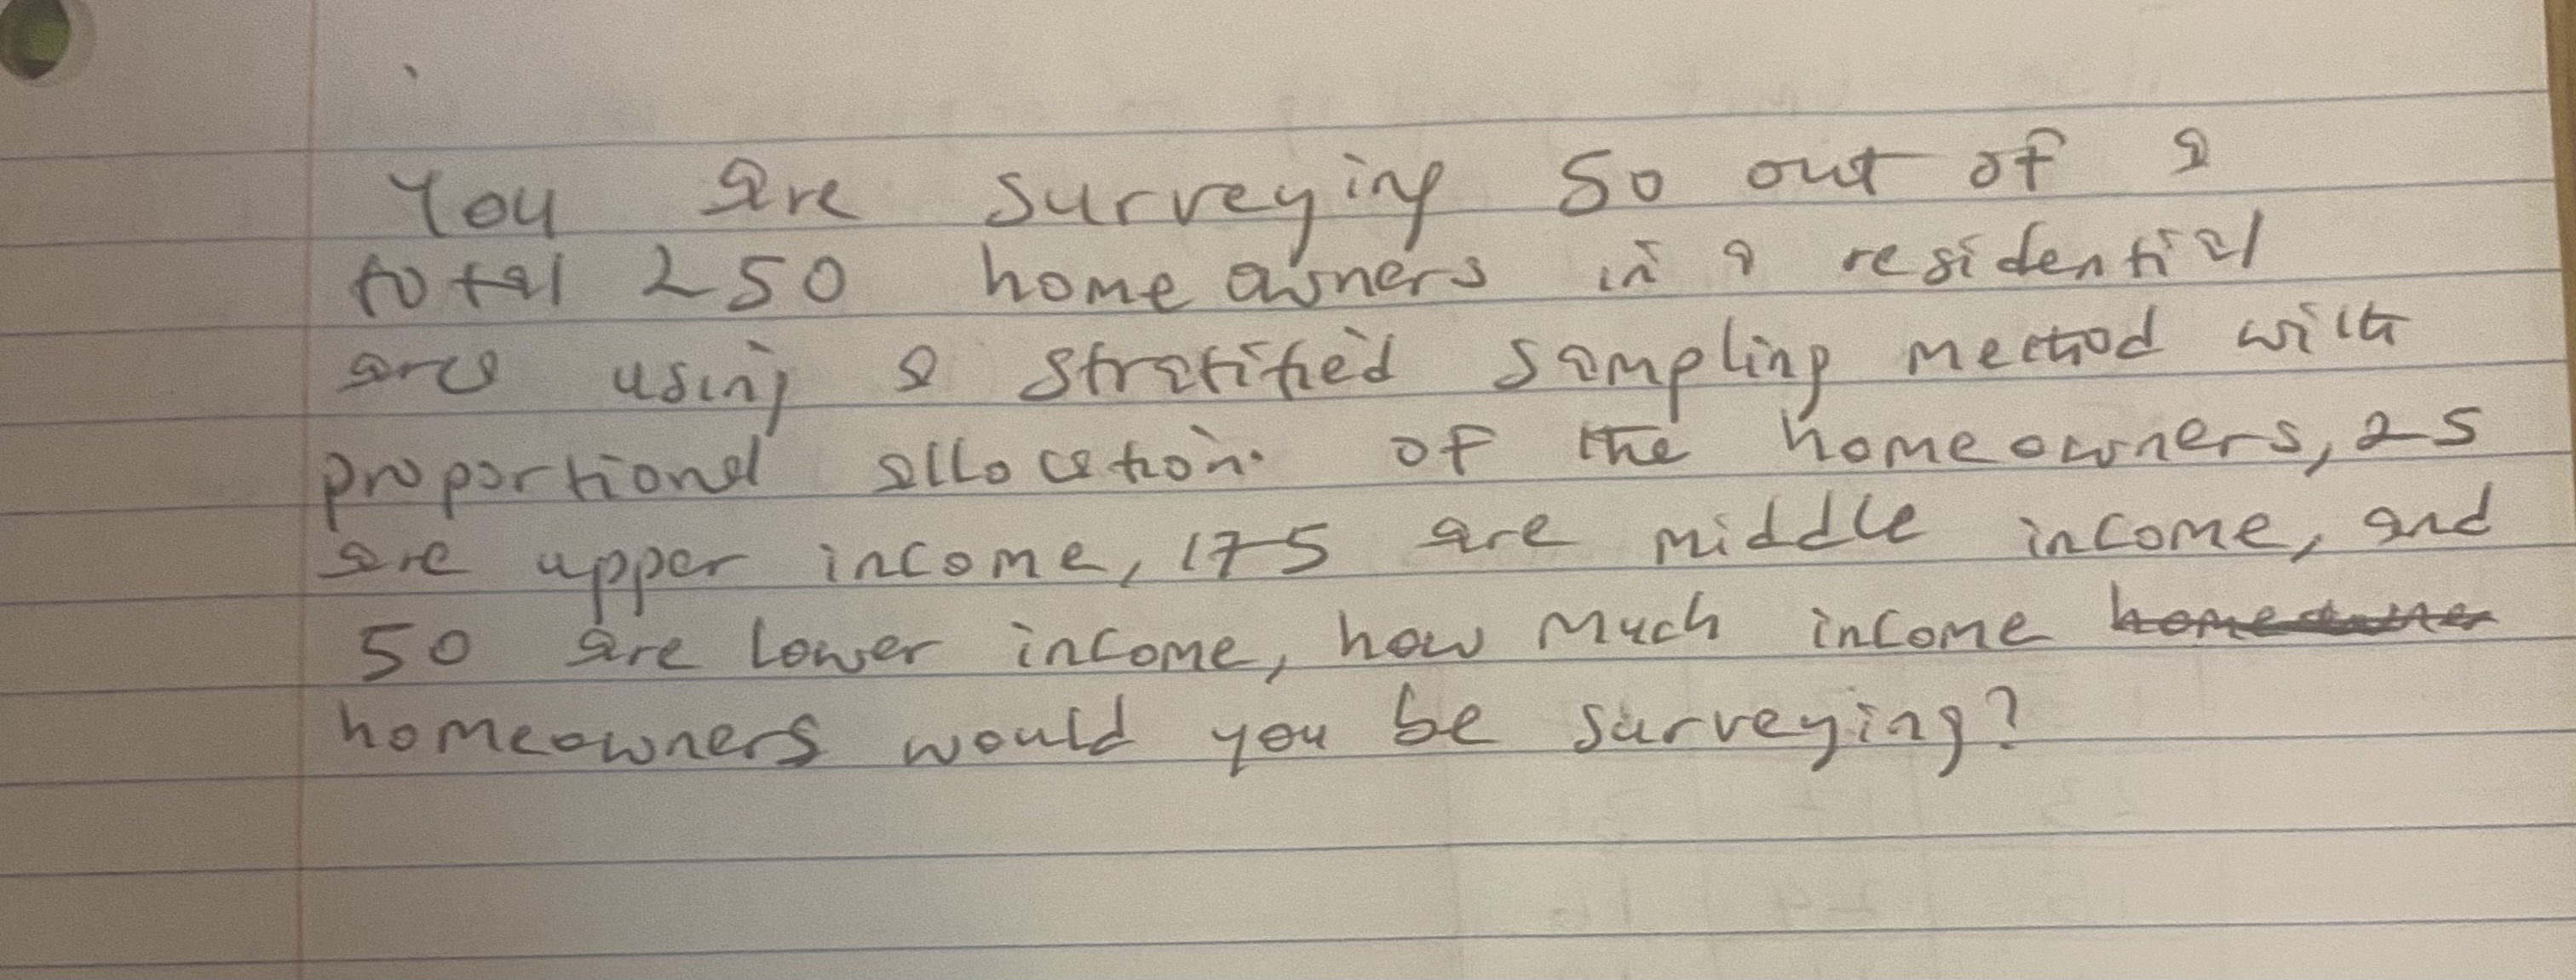 You are surveying 50 out of a
total 250 homeowners in a residential
area using a stratified sampling method with
proportional allocation. Of the homeowners, 25
are upper income, 175 are middle income, and
50 are lower income, how much income homeowner
homeowners would you be surveying?